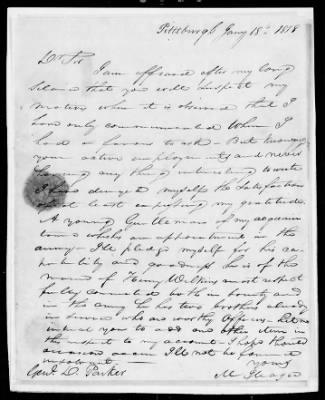 Pittsburgh Jany 15th 1818
Dr Sir
I am affraid after my long
silence that you will suspect my
motives when it is observed that I
have only communicated when I
had a favour to ask - But knowing
your active employments and never
having any thing interesting to write
I have denyed myself the satisfaction
of at least expressing my gratitude.
A young Gentleman of my acquain
tance wishes an appointment in the
army - I'll pledge myself for his ca
pability and goodness he is of the
name of Henry Wilkins most respect
fully connected both in County and
in the Army he has two brothers already
in service who are worthy officers - Let me
intreat you to add one other item in
this respect to my account - I hope should
occasion occur I'll not be found
yours
Genl D. Parker